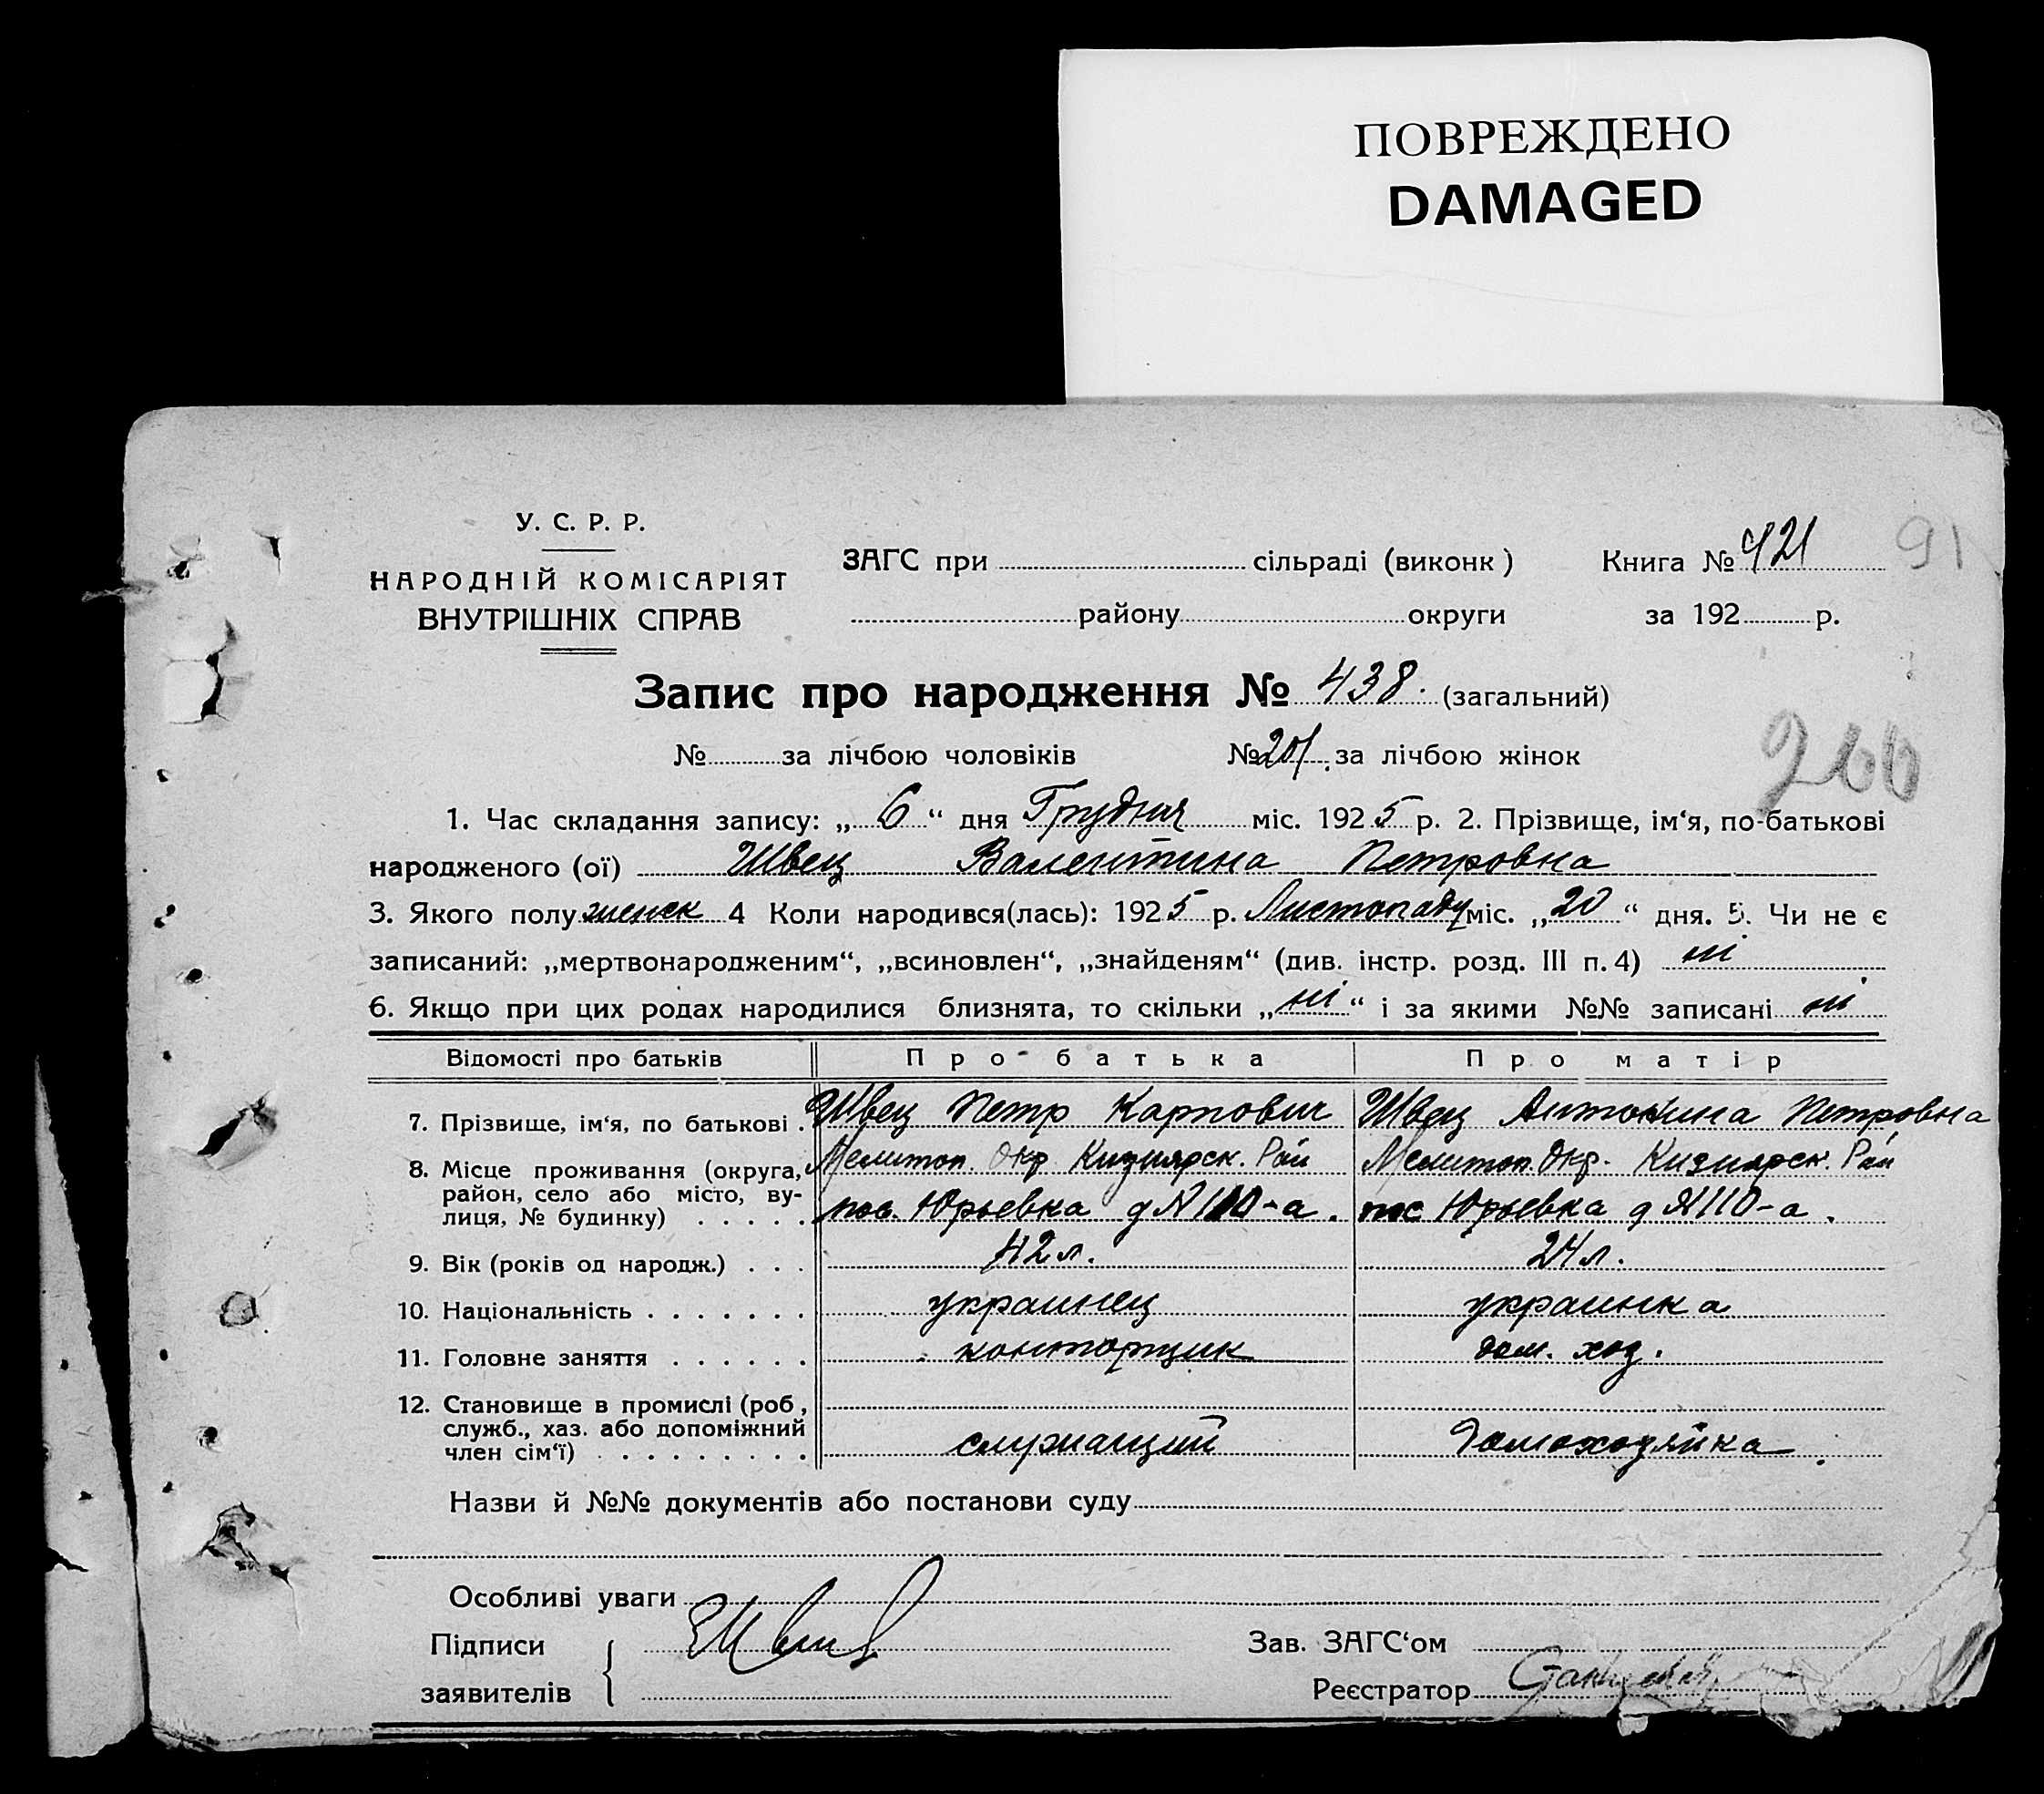 ПОВРЕЖДЕНО
DAMAGED
У. С. Р. Р.
НАРОДНІЙ КОМІСАРІЯТ
ВНУТРІШНІХ СПРАВ
ЗАГС при сільраді (виконк)
Книга № 421
91
району округи за 192 р.
Запис про народження № 438. (загальний)
№ за лічбою чоловіків № 201. за лічбою жінок
260
1. Час складання запису: „ 6 “ дня Грудня міс. 1925 р. 2. Прізвище, ім‘я, по-батькові
народженого (ої) Швец Валентина Петровна
3. Якого полу женск 4 Коли народився(лась): 1925 р. Листопаду міс. „ 20 “ дня. 5. Чи не є
записаний: „мертвонародженим“, „всиновлен“, „знайденям“ (див. інстр. розд. III п. 4) ні
6. Якщо при цих родах народилися близнята, то скільки „ ні “ і за якими №№ записані ні
Відомості про батьків Про батька Про матір
7. Прізвище, ім‘я, по батькові . Швец Петр Карпович Швец Антонина Петровна
8. Місце проживання (округа, Мелитоп. Окр Кизиярск. Рай Мелитоп. Окр. Кизиярск. Рай
район, село або місто, ву-
лиця, № будинку) . . . . . пос. Юрьевка д № 110-а. пос Юрьевка д № 110-а.
9. Вік (років од народж.) . . . 42 л. 24 л.
10. Національність . . . . . . . украинец украинка
11. Головне заняття . . . . . . конторщик дом. хоз.
12. Становище в промислі (роб.,
служб., хаз. або допоміжний
член сім‘ї) . . . . . . . . . служащий Домохозяйка
Назви й №№ документів або постанови суду
Особливі уваги
Підписи
заявителів
Зав. ЗАГС‘ом
Реєстратор